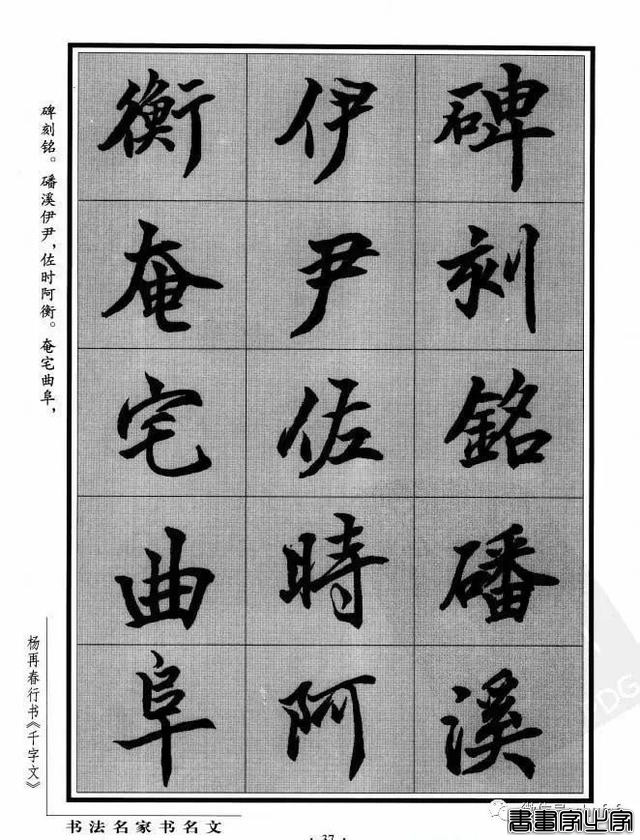 碑刻銘磻溪
伊尹佐時阿
衡奄宅曲阜
碑刻铭。磻溪伊尹，佐时阿衡。奄宅曲阜，
杨再春行书《千字文》
书法名家书名文
· 37 ·
書畫家出字